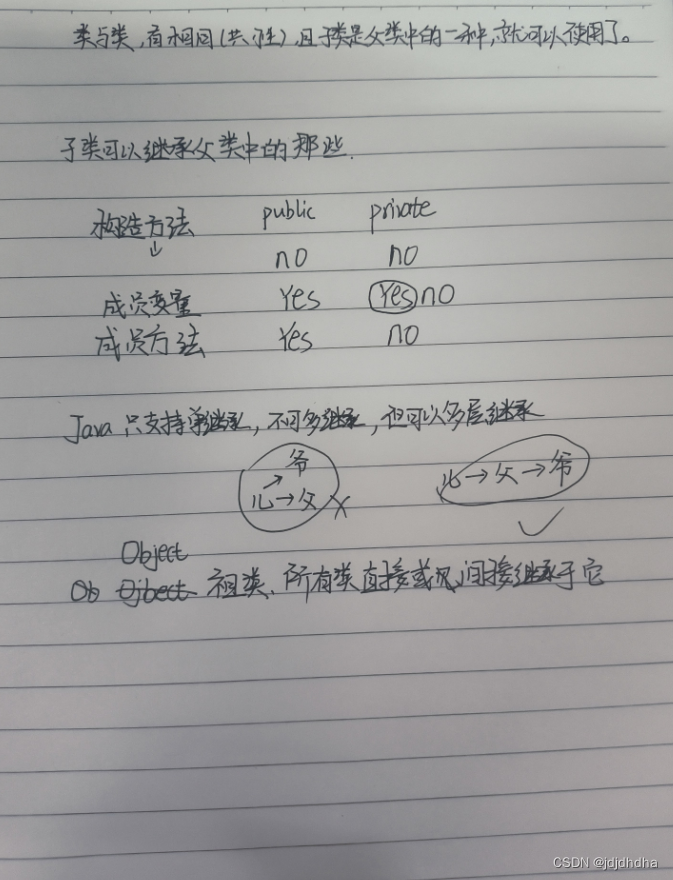 类与类,有相同(共性),且子类是父类中的一种,就可以使用了。
子类可以继承父类中的那些.
构造方法 public private
↓ no no
成员变量 Yes Yes no
成员方法 Yes no
Java 只支持单继承,不可多继承,但可以多层继承
爷
儿→父 X 儿→父→爷
Object
Ob Ojbect 祖类、所有类直接或 间接继承于它
CSDN @jdjdhdha